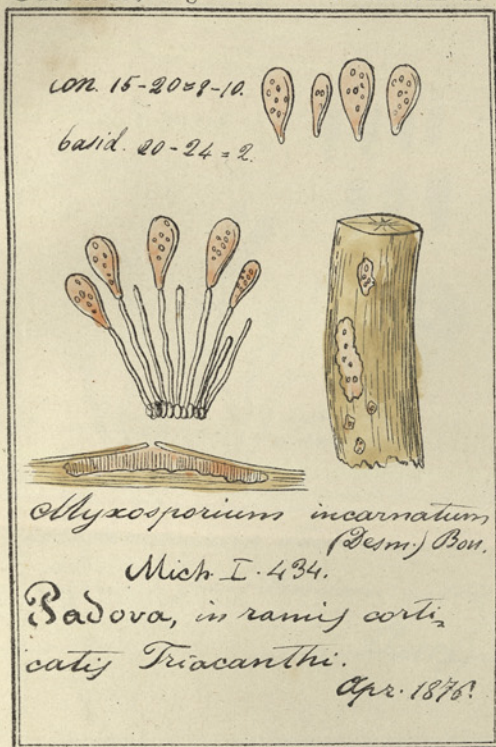 con. 15-20=9-10.
basid. 20-24=2.
Myxosporium incarnatum
(Desm.) Bon.
Mich. I. 434.
Padova, in ramis corti-
catis Triacanthi.
Apr. 1876.